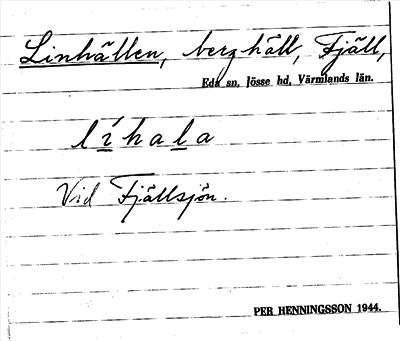 Linhällen, berghäll, Fjäll,
Eda sn, Jösse hd, Värmlands län.
líhala
Vid Fjällsjön.
PER HENNINGSSON 1944.